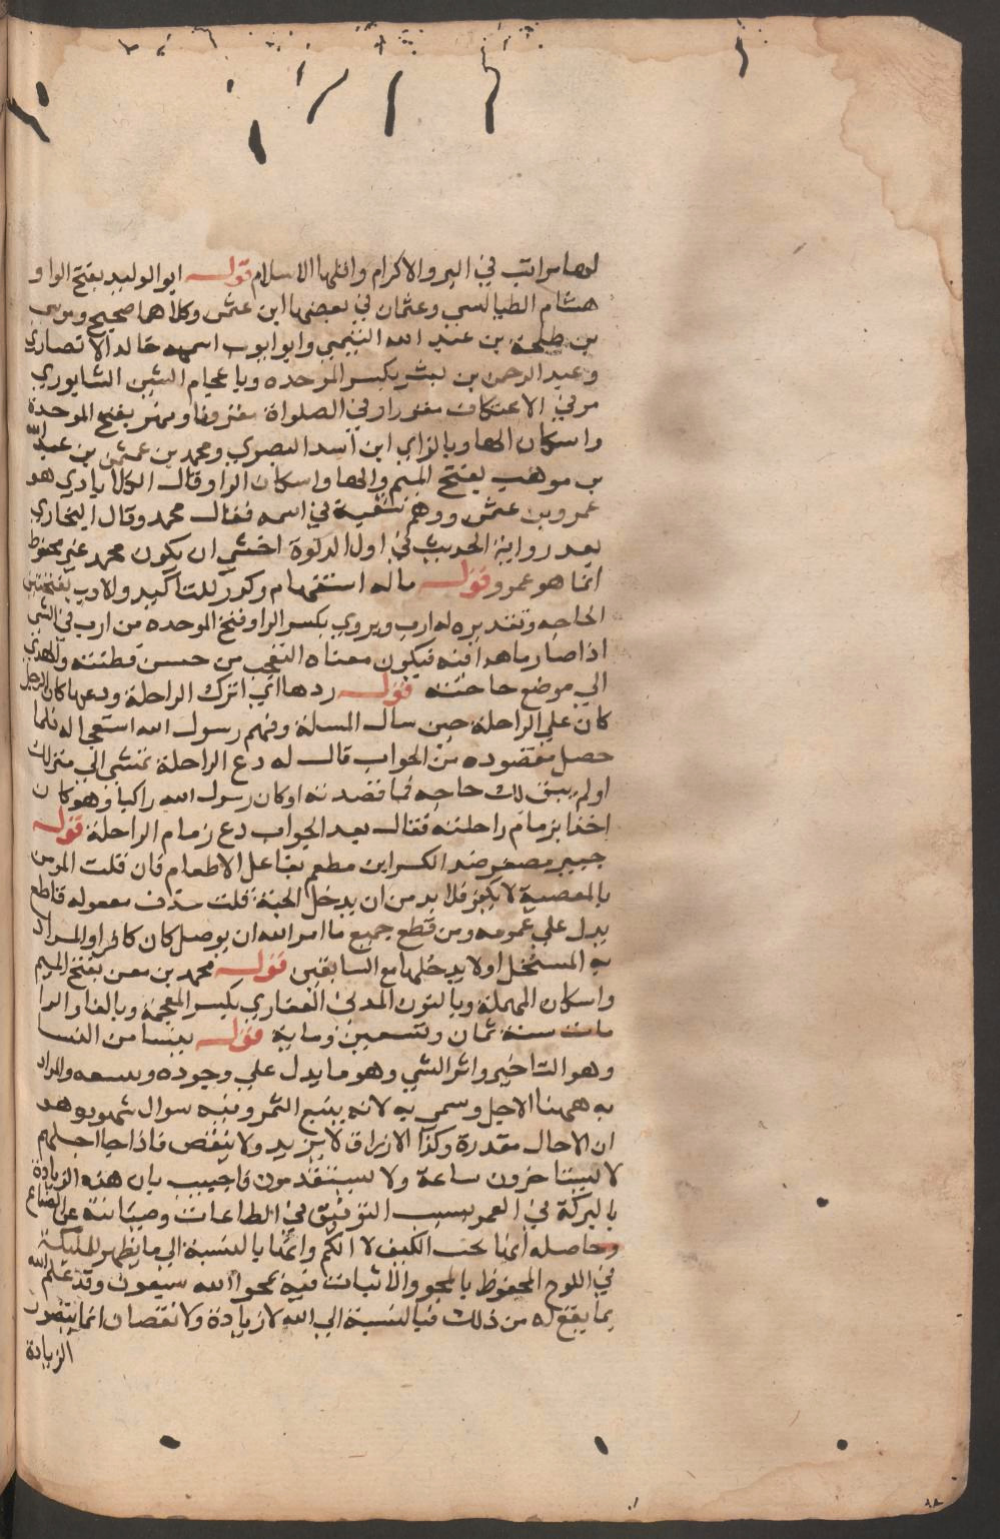 لها مراتب في البر والاكرام واقلها الاسلام قوله ابو الوليد بفتح الواو
هشام الطيالسي وعثمان في بعضها ابن عثمن وكلاهما صحيح وموسى
بن طلحة بن عبيد الله التيمي وابو ايوب اسمه خالد الانصاري
وعبد الرحمن بن بشر بكسر الموحده وباعجام الشين النيسابوري
مر في الاعتكاف وفي الصلواة مقرونا وبهز بفتح الموحدة
واسكان الها وبالزاي ابن اسد البصري ومحمد بن عثمن بن عبد الله
بن موهب بفتح الميم والها واسكان الراو قال الكلاباذي هو
عمرو بن عثمن ووهم شعبة في اسمه فقال محمد وقال البخاري
بعد رواية الحديث في اول الزكوة اخشى ان يكون محمد غير محفوظ
انما هو عمرو قوله ماله استفهام وكرر للتاكيد والارب بفتحتين
الحاجه وتقديره له ارب ويروي بكسر الرا وفتح الموحده من ارب في الشي
اذا صار ماهرا فيه فيكون معناه التعجب من حسن فطنته والهدي
الى موضع حاجته قوله ردها اي اترك الراحلة ودعها كان الرجل
كان علي الراحلة حين سال المسلة وفهم رسول الله استعجاله فلما
حصل مقصوده من الجواب قال له دع الراحلة تمشي الي منزلك
اولم يبق لك حاجه فيما قصدته او كان رسول الله راكبا وهو كان
اخذا بزمام راحلته فقال بعد الجواب دع زمام الراحلة قوله
جبير مصغر ضد الكسر ابن مطعم بفاعل الاطعام فان قلت المومن
بالمعصية لا يكفر فلا بد من ان يدخل الجنة قلت حذف مفعوله قاطع
يدل علي عمومه ومن قطع جميع ما امر الله ان يوصل كان كافرا والمراد
به المستحل اولا يدخلها مع السابقين قوله محمد بن معن بفتح الميم
واسكان المهملة وبالنون المدني الغفاري بكسر المعجمة وبالفا والرا
مات سنة ثمان وتسعين وماية قوله ينسا من النسا
وهو التاخير واثر الشي وهو ما يدل علي وجوده ويتبعه والمراد
به ههنا الاجل وسمي به لانه يتبع العمر وفيه سوال مشهور وهو
ان الاجال مقدرة وكذا الارزاق لا يزيد ولا ينقص فاذا جا اجلهم
لا يستاخرون ساعة ولا يستقدمون واجيب بان هذه الزيادة
بالبركة في العمر بسبب التوفيق في الطاعات وصيانته عن الضياع
وحاصله انها بحسب الكيف لا الكم وانها بالنسبة الي ما يظهر للملئكة
في اللوح المحفوظ بالمحو والاثبات فيه يمحوا الله سيعون وقد علم الله
بما يقع له من ذلك فبالنسبة الي الله لا زيادة ولا نقصان انما يتصور
الزيادة